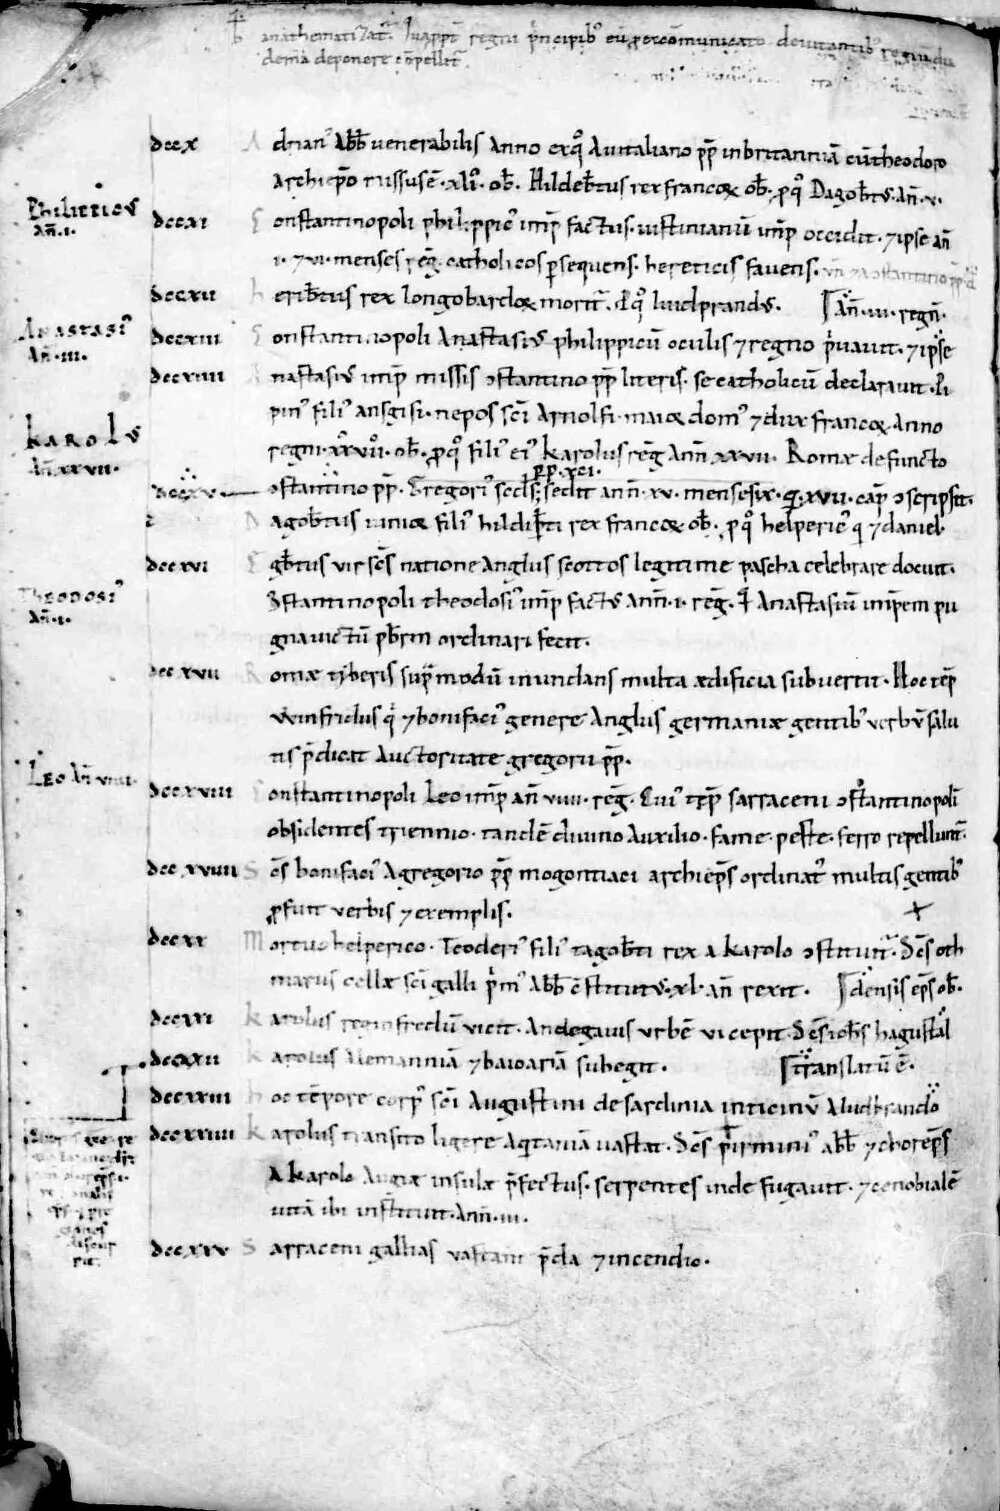 anathematizat͛. regni p̍ncipibꝰ eū p excōmunicato deuitantibꝰ regnū
demā deponere cōpellit͛.
dccx Adrianꝰ abb̄ venerabilis anno ex qͦ a uitaliano pp̄ in britanniā cū theodoro
archiep̄o missus ē. xlͥ. ob̄. Hildeb̄tus rex francoꝝ ob̄. p qͦ Dagob̄tꝰ. an̄. v.
Philippicꝰ
an̄. i.
dccxi Constantinopoli philippicꝰ imp̄ factus. iustinianū imp̄ occidit. ⁊ ipse an̄
i. ⁊ vi. menses reḡ. catholicos ꝑsequens. hereticis fauens.
dccxii Herib̄tus rex longobardoꝝ morit͛. P qͦ liudprandꝰ. an̄. iii. regn̄.
Anastasiꝰ
an̄. iii.
dccxiii Constantinopoli Anastasiꝰ philippicū oculis ⁊ regno p̍uauit. ⁊ ipse
dccxiiii Anastasiꝰ imp̄ missis ↄstantino pp̄ literis. se catholicū declarauit. Pi
pinꝰ filiꝰ ansgisi. nepos sc̄i Arnolfi. maioꝝ domꝰ ⁊ dux francoꝝ. Anno
Karolꝰ
an̄. xxvii.
regni. xxvii. ob̄. p qͦ filiꝰ eiꝰ Karolus reḡ ann̄ xxvii. Romæ defuncto
pp. xci.
dccxv ↄstantino pp̄. Gregoriꝰ scd̄s; sedit ann̄. xv. menses ix. q. xvii. cap̄ ↄscripsit.
Dagob̄tus iunioꝛ filiꝰ hildip̄ti rex francoꝝ ob̄. p qͦ helpericꝰ q ⁊ daniel.
dccxvi Egb̄tus vir sc̄s natione Anglus scottos legitime pascha celebrare docuit.
Theodosiꝰ
an̄. i.
Ↄstantinopoli theodosiꝰ imp̄ factꝰ ann̄. i. reḡ. Anastasiū imp̄em pu
gna victū pb̄rm ordinari fecit.
dccxvii Romæ tyberis sup̄ modū inundans multa ædificia subuertit. Hoc tēp
Winfridus q̍ ⁊ bonifaciꝰ genere Anglus germaniæ gentibꝰ verbū salu
tis p̄dicat auctoritate gregorii pp̄.
Leo an̄ viiii.
dccxviii Constantinopoli Leo imp̄ an̄ viiii. reḡ. Cuiꝰ tēp̄ sarraceni ↄstantinopolī
obsidentes triennio. tandē diuino auxilio. fame. peste. ferro repellunt͛.
dccxviiii Sc̄s bonifaciꝰ a gregorio pp̄ mogontiaci archiep̄s ordinat͛ multis gentibꝰ
ꝓfuit verbis ⁊ exemplis.
dccxx Mortuo helperico. Teodericꝰ filiꝰ tagob̄ti rex a karolo ↄstituit͛. Sc̄s oth
marus cellæ sc̄i galli p̍mꝰ abb̄ ↄstitutꝰ. xl. an̄ rexit. densis ep̄s ob̄.
dccxxi Karolus reginfredū vicit. Andegauis vrbē vi cepit. Sc̄s ioh̄s hagustal
dccxxii Karolus Alemanniā ⁊ baioariā subegit. translatū ē.
dccxxiii Hoc tēpore corpꝰ sc̄i Augustini de sardinia in ticinū a liudbrando
dccxxiiii Karolus transito ligere aq̍taniā uastat. Sc̄s pirminiꝰ abb̄ ⁊ chorep̄s
a karolo Augiæ insulæ p̄fectus. serpentes inde fugauit. ⁊ cenobialē
uitā ibi instituit. ann̄. iii.
dccxxv Sarraceni gallias vastant p̄da ⁊ incendio.